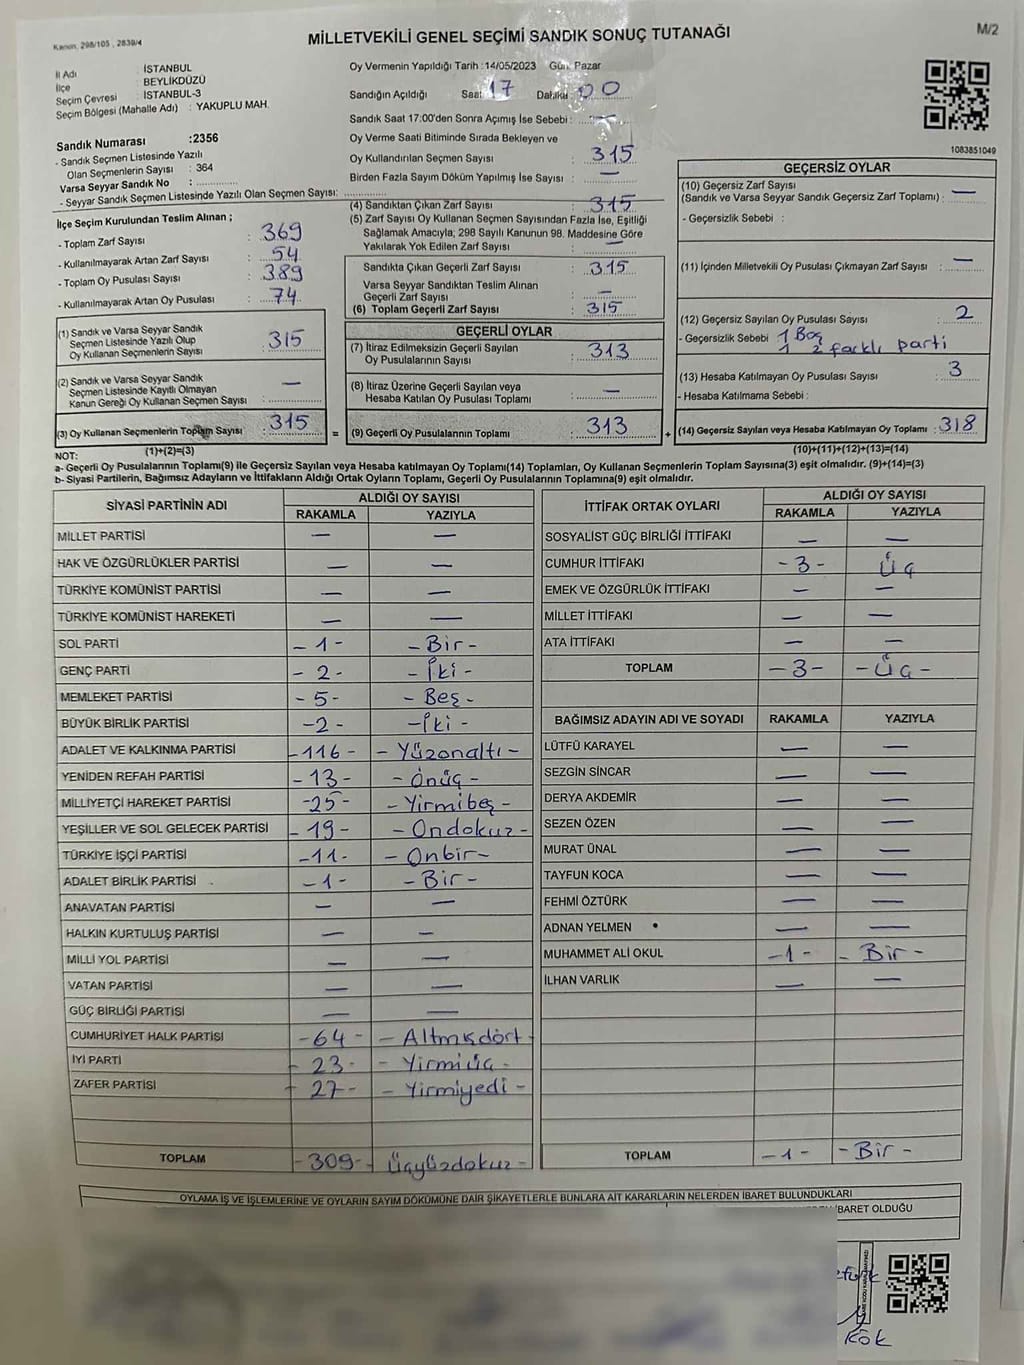 Kanun, 298/105 , 2839/4
MİLLETVEKİLİ GENEL SEÇİMİ SANDIK SONUÇ TUTANAĞI
M/2
İl Adı : İSTANBUL
İlçe : BEYLİKDÜZÜ
Seçim Çevresi : İSTANBUL-3
Seçim Bölgesi (Mahalle Adı) : YAKUPLU MAH.
Sandık Numarası :2356
- Sandık Seçmen Listesinde Yazılı
Olan Seçmenlerin Sayısı : 364
Varsa Seyyar Sandık No :
- Seyyar Sandık Seçmen Listesinde Yazılı Olan Seçmen Sayısı:
İlçe Seçim Kurulundan Teslim Alınan ;
- Toplam Zarf Sayısı : 369
- Kullanılmayarak Artan Zarf Sayısı : 54
- Toplam Oy Pusulası Sayısı : 389
- Kullanılmayarak Artan Oy Pusulası : 74
(1) Sandık ve Varsa Seyyar Sandık
Seçmen Listesinde Yazılı Olup
Oy Kullanan Seçmenlerin Sayısı : 315
(2) Sandık ve Varsa Seyyar Sandık
Seçmen Listesinde Kayıtlı Olmayan
Kanun Gereği Oy Kullanan Seçmen Sayısı : —
(3) Oy Kullanan Seçmenlerin Toplam Sayısı : 315
(1)+(2)=(3)
Oy Vermenin Yapıldığı Tarih :14/05/2023 Gün: Pazar
Sandığın Açıldığı Saat 17 Dakika : 00
Sandık Saat 17:00'den Sonra Açımış İse Sebebi : —
Oy Verme Saati Bitiminde Sırada Bekleyen ve
Oy Kullandırılan Seçmen Sayısı : 315
Birden Fazla Sayım Döküm Yapılmış İse Sayısı : —
(4) Sandıktan Çıkan Zarf Sayısı : 315
(5) Zarf Sayısı Oy Kullanan Seçmen Sayısından Fazla İse, Eşitliği
Sağlamak Amacıyla; 298 Sayılı Kanunun 98. Maddesine Göre
Yakılarak Yok Edilen Zarf Sayısı : —
Sandıkta Çıkan Geçerli Zarf Sayısı : 315
Varsa Seyyar Sandıktan Teslim Alınan
Geçerli Zarf Sayısı : —
(6) Toplam Geçerli Zarf Sayısı : 315
GEÇERLİ OYLAR
(7) İtiraz Edilmeksizin Geçerli Sayılan
Oy Pusulalarının Sayısı : 313
(8) İtiraz Üzerine Geçerli Sayılan veya
Hesaba Katılan Oy Pusulası Toplamı : —
= (9) Geçerli Oy Pusulalarının Toplamı : 313
1083851049
GEÇERSİZ OYLAR
(10) Geçersiz Zarf Sayısı
(Sandık ve Varsa Seyyar Sandık Geçersiz Zarf Toplamı) : —
- Geçersizlik Sebebi :
(11) İçinden Milletvekili Oy Pusulası Çıkmayan Zarf Sayısı : —
(12) Geçersiz Sayılan Oy Pusulası Sayısı : 2
- Geçersizlik Sebebi : 1 Boş
1 2 farklı parti
(13) Hesaba Katılmayan Oy Pusulası Sayısı : 3
- Hesaba Katılmama Sebebi :
+ (14) Geçersiz Sayılan veya Hesaba Katılmayan Oy Toplamı : 318
(10)+(11)+(12)+(13)=(14)
NOT:
a- Geçerli Oy Pusulalarının Toplamı(9) ile Geçersiz Sayılan veya Hesaba katılmayan Oy Toplamı(14) Toplamları, Oy Kullanan Seçmenlerin Toplam Sayısına(3) eşit olmalıdır. (9)+(14)=(3)
b- Siyasi Partilerin, Bağımsız Adayların ve İttifakların Aldığı Ortak Oyların Toplamı, Geçerli Oy Pusulalarının Toplamına(9) eşit olmalıdır.
SİYASİ PARTİNİN ADI ALDIĞI OY SAYISI
RAKAMLA YAZIYLA
MİLLET PARTİSİ — —
HAK VE ÖZGÜRLÜKLER PARTİSİ — —
TÜRKİYE KOMÜNİST PARTİSİ — —
TÜRKİYE KOMÜNİST HAREKETİ — —
SOL PARTİ - 1 - - Bir -
GENÇ PARTİ - 2 - - İki -
MEMLEKET PARTİSİ - 5 - - Beş -
BÜYÜK BİRLİK PARTİSİ - 2 - - İki -
ADALET VE KALKINMA PARTİSİ - 116 - - Yüzonaltı -
YENİDEN REFAH PARTİSİ - 13 - - Onüç -
MİLLİYETÇİ HAREKET PARTİSİ - 25 - - Yirmibeş -
YEŞİLLER VE SOL GELECEK PARTİSİ - 19 - - Ondokuz -
TÜRKİYE İŞÇİ PARTİSİ - 11 - - Onbir -
ADALET BİRLİK PARTİSİ - 1 - - Bir -
ANAVATAN PARTİSİ — —
HALKIN KURTULUŞ PARTİSİ — —
MİLLİ YOL PARTİSİ — —
VATAN PARTİSİ — —
GÜÇ BİRLİĞİ PARTİSİ — —
CUMHURİYET HALK PARTİSİ - 64 - - Altmışdört -
İYİ PARTİ - 23 - - Yirmiüç -
ZAFER PARTİSİ - 27 - - Yirmiyedi -
TOPLAM - 309 - Üçyüzdokuz -
İTTİFAK ORTAK OYLARI ALDIĞI OY SAYISI
RAKAMLA YAZIYLA
SOSYALİST GÜÇ BİRLİĞİ İTTİFAKI — —
CUMHUR İTTİFAKI - 3 - Üç
EMEK VE ÖZGÜRLÜK İTTİFAKI — —
MİLLET İTTİFAKI — —
ATA İTTİFAKI — —
TOPLAM - 3 - - Üç -
BAĞIMSIZ ADAYIN ADI VE SOYADI RAKAMLA YAZIYLA
LÜTFÜ KARAYEL — —
SEZGİN SİNCAR — —
DERYA AKDEMİR — —
SEZEN ÖZEN — —
MURAT ÜNAL — —
TAYFUN KOCA — —
FEHMİ ÖZTÜRK — —
ADNAN YELMEN — —
MUHAMMET ALİ OKUL - 1 - - Bir -
İLHAN VARLIK — —
TOPLAM - 1 - - Bir -
OYLAMA İŞ VE İŞLEMLERİNE VE OYLARIN SAYIM DÖKÜMÜNE DAİR ŞİKAYETLERLE BUNLARA AİT KARARLARIN NELERDEN İBARET BULUNDUKLARI
İBARET OLDUĞU
KÖK